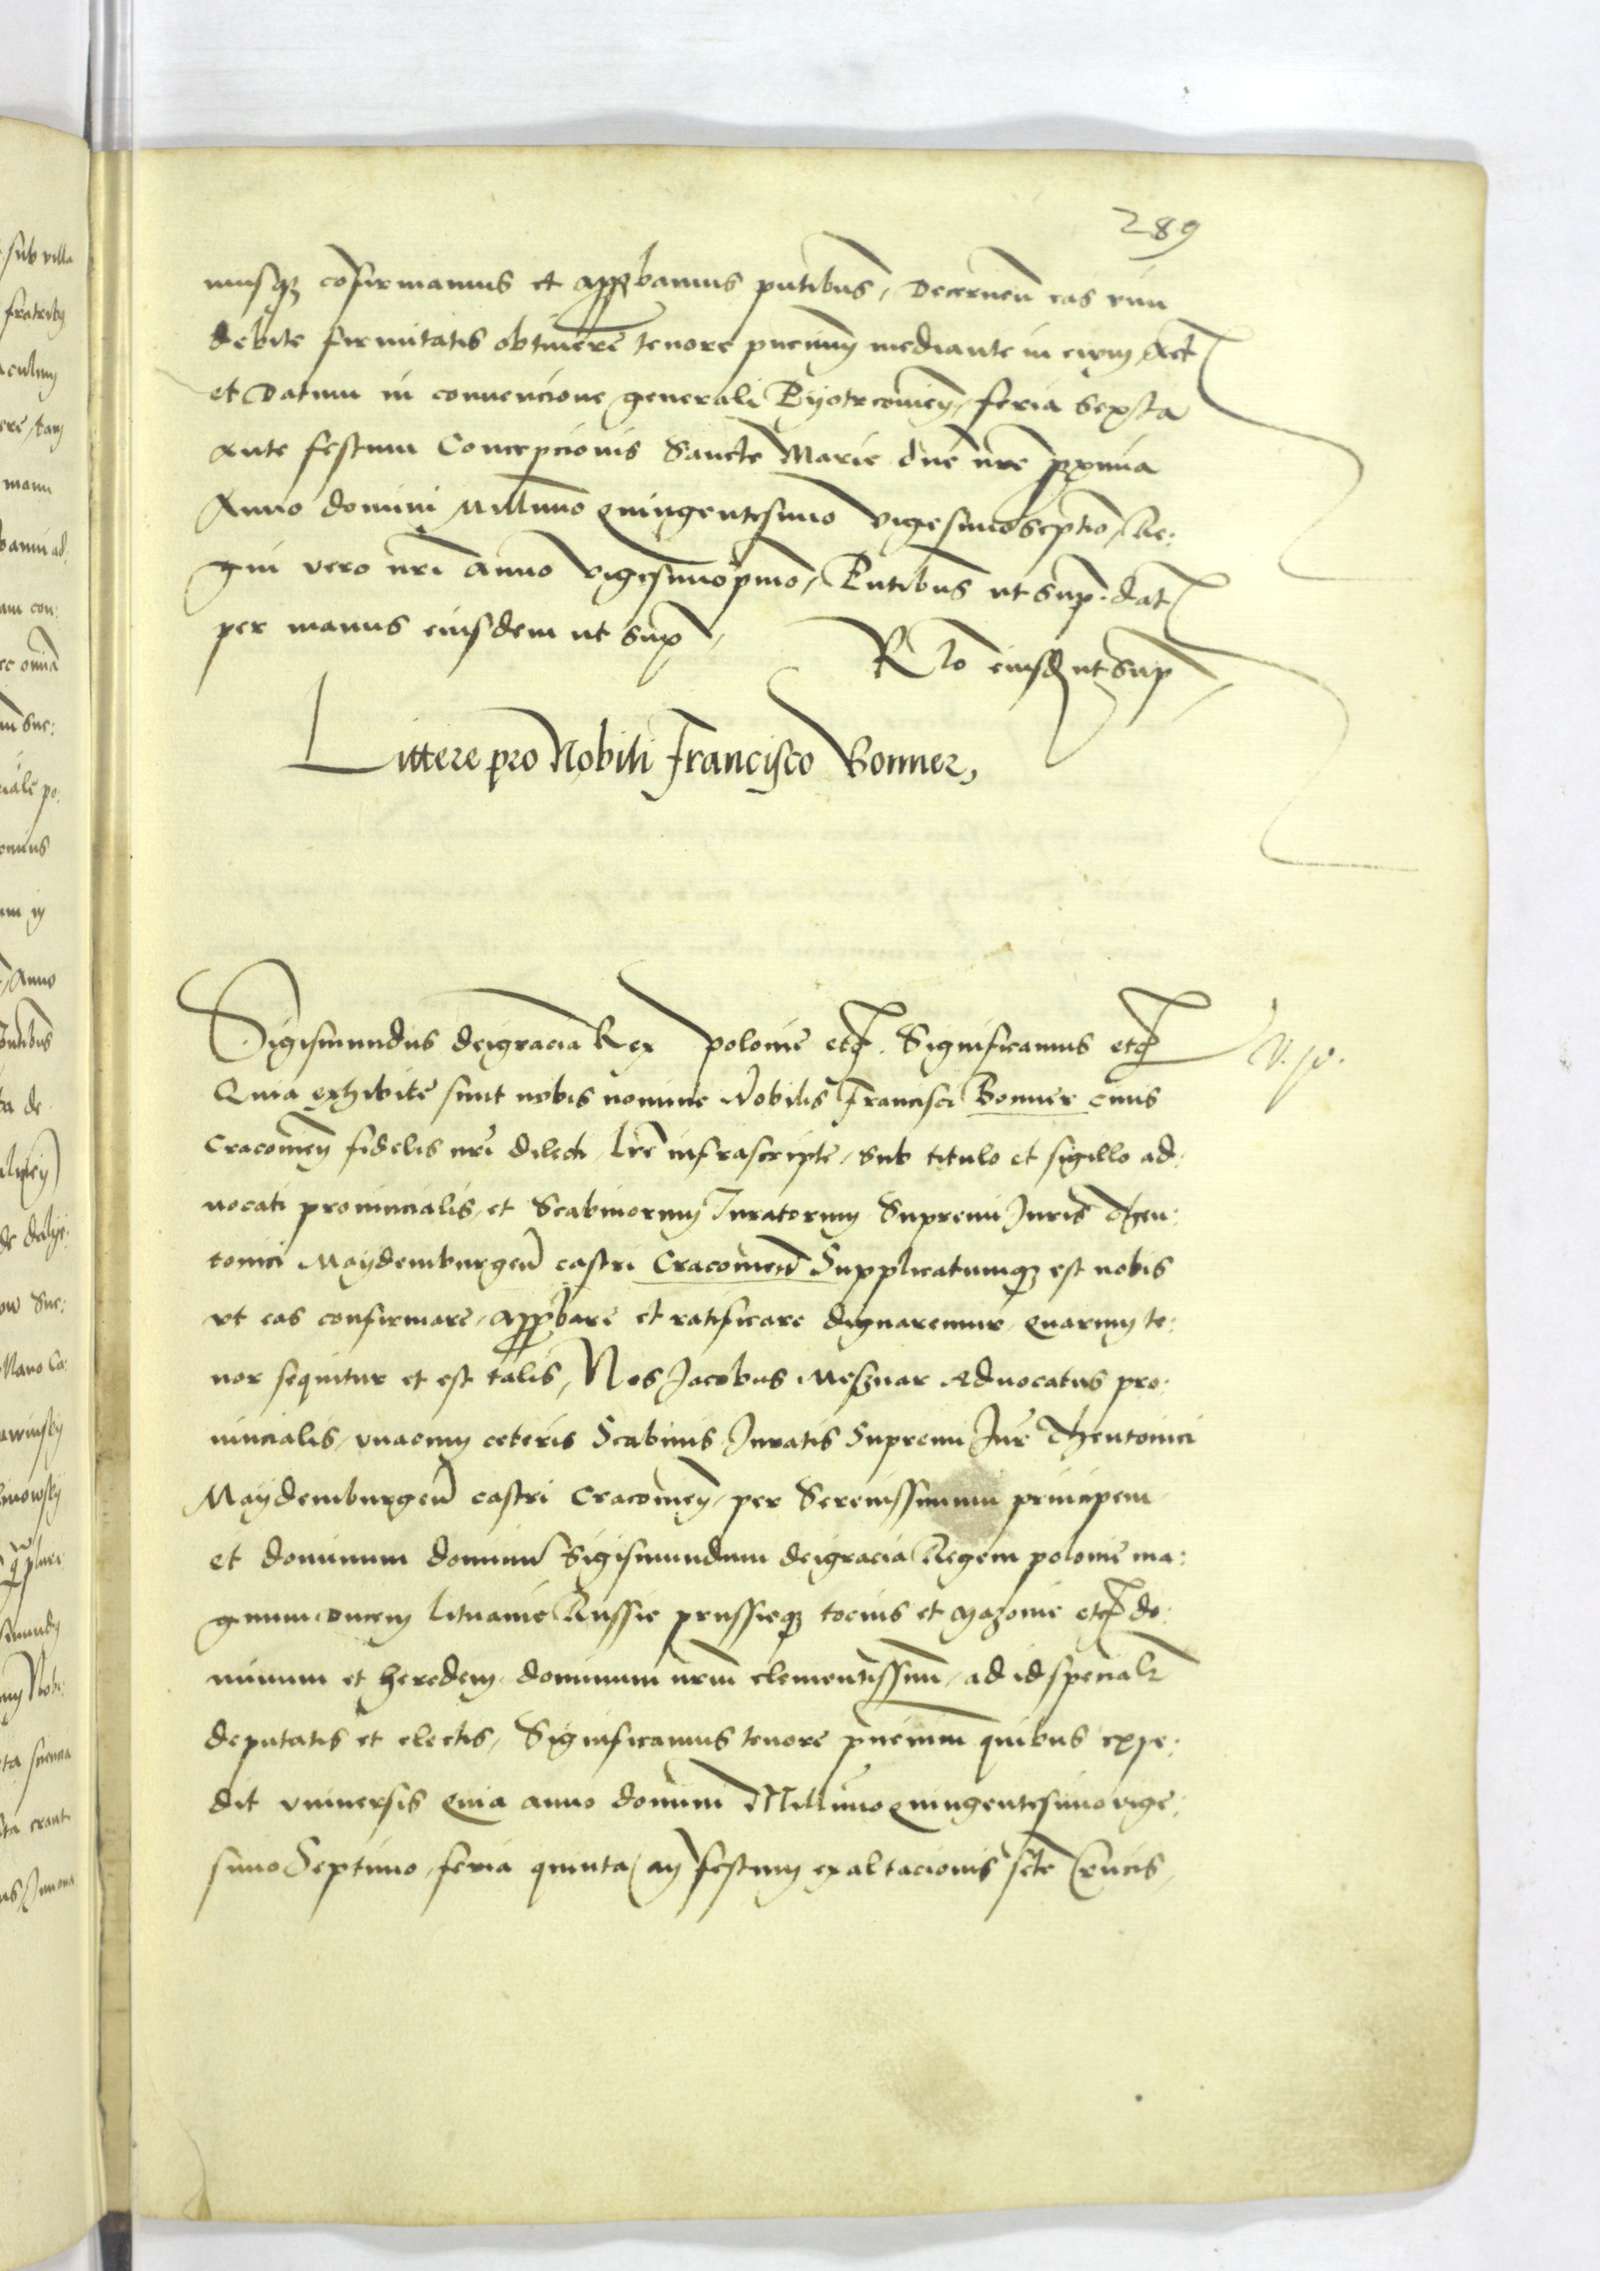 289
musq3 cōfirmamus et approbamus pntibus, Decernen eas vim
debite firmitatis obtinere tenore pncium mediante in evum Act
et Datum in convencione generali Pyotrcovien, feria sexta
Ante festum Concepcionis Sancte Marie dne nre proxima
Anno domini Millimo quingentesimo vigesimoseptio, Re:
gni vero nri anno vigesimoprimo, Pntibus ut sup. dat
per manus eiusdem ut sup,
Rlo eiusd ut sup
Littere pro Nobili Francisco Bonner,
Sigismundus deigracia Rex polonie etc. Significamus etc
Quia exhibite sunt nobis nomine Nobilis Francisci Bonner civis
Cracovien fidelis nri dilecti, lre infrascripte, sub titulo et sigillo ad:
vocati provincialis, et Scabinorum Juratorum Supremi Juris Theu:
tonici Maydemburgen castri Cracovien Supplicatumq3 est nobis
vt eas confirmare, approbare et ratificare dignaremur, quarum te:
nor sequitur et est talis, Nos Jacobus Mesznar Advocatus pro:
vincialis, vnacum ceteris Scabinis Juratis Supremi Jur Theutonici
Maydemburgen castri Cracovien, per Serenissimum principem
et dominum dominum Sigismundum deigracia Regem polonie ma:
gnum ducem lituanie Russie prussieq3 tocius et mazovie etc do:
minum et heredem, dominum nrm clementissim, ad id special
deputatis et electis, Significamus tenore pncium quibus expe:
dit vniversis Quia anno domini Millimo quingentesimo vige:
simo Septimo, feria quinta an festum exaltacionis scte Crucis,